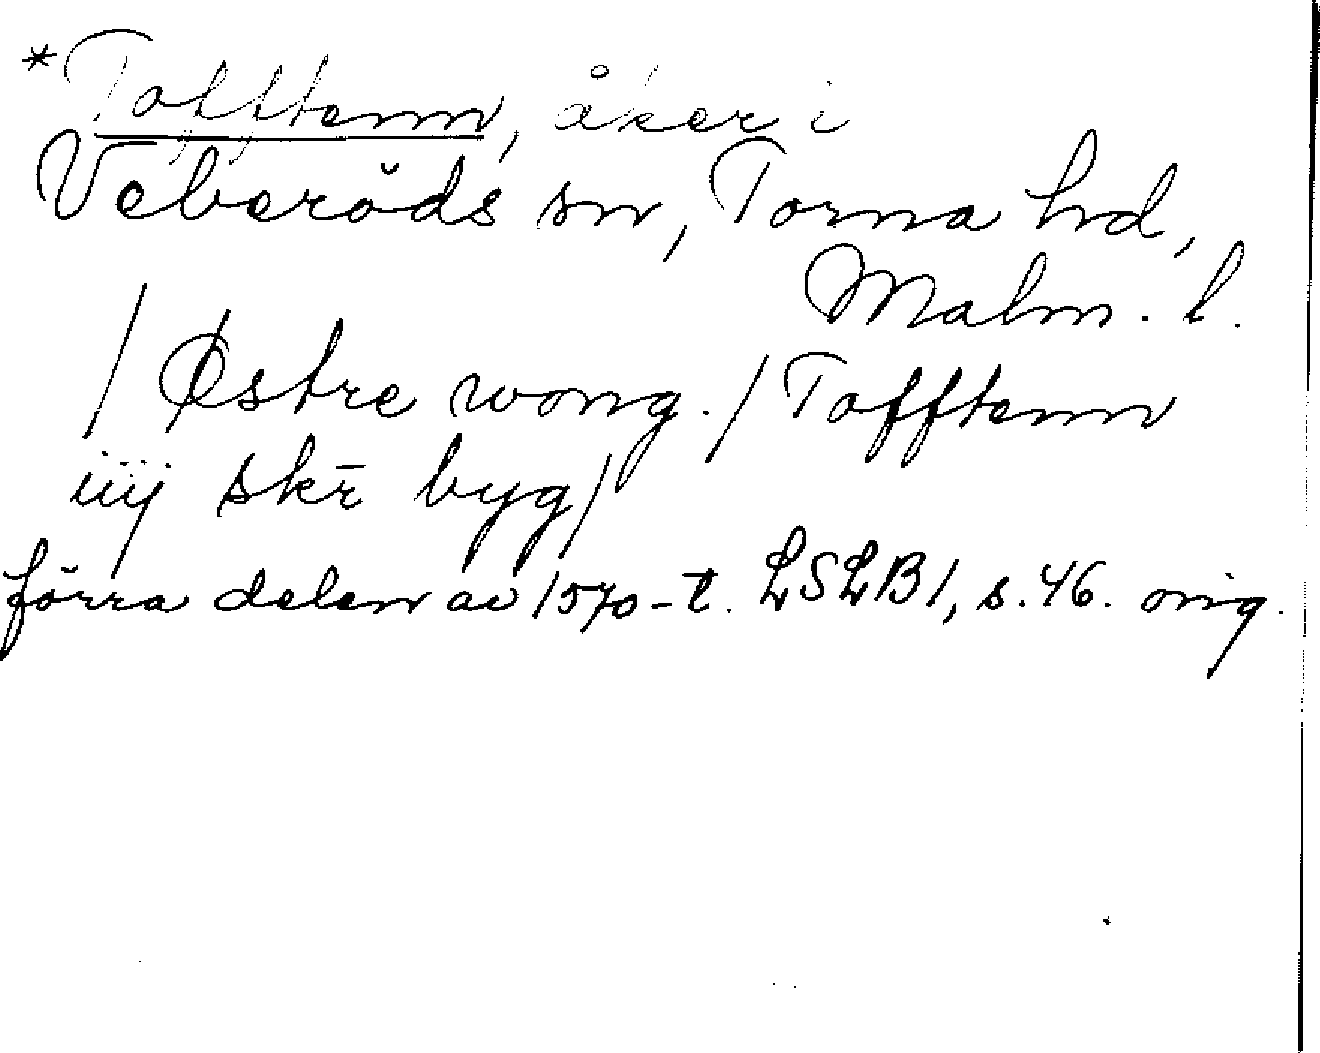 *Tofftenn, åker i
Veberöds sn, Torna hd,
Malm. l.
/Østre wong./Tofftenn
iiij skr̄ byg/
förra delen av 1570-t. LSLB1, s. 46. orig.